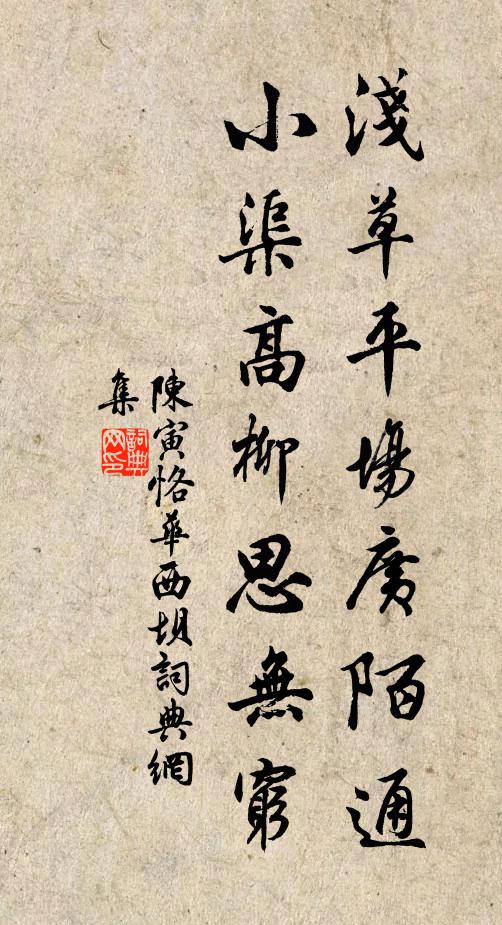 淺草平場廣陌通
小渠高柳思無窮
陳寅恪華西坝詞典網
集
詞典
网印